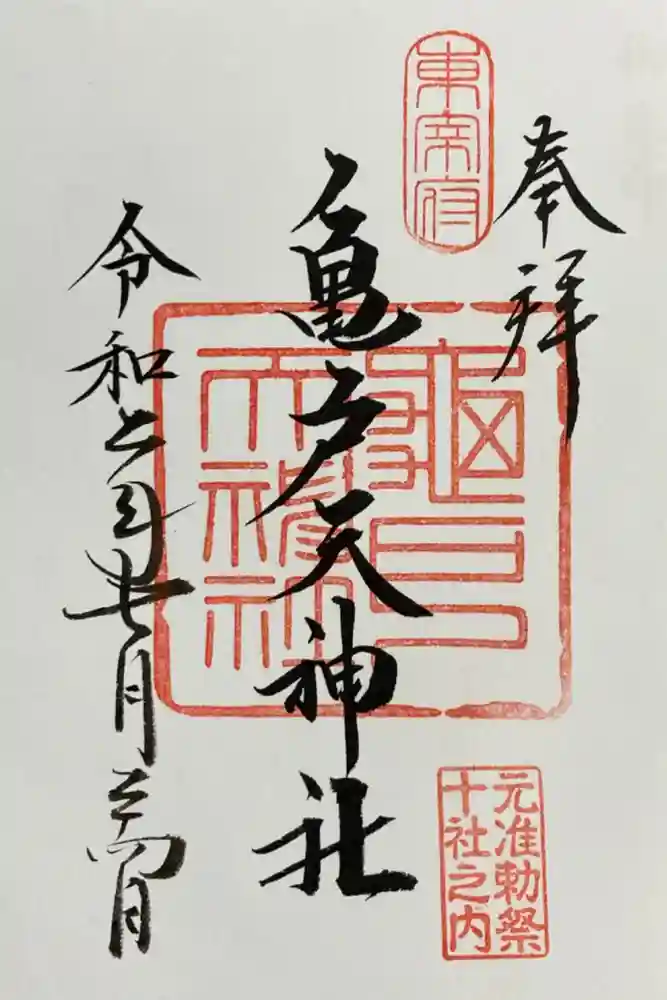 奉拝
東宰府
亀戸天神社
龜戸
天神社
令和
年
月
四日
元准勅祭
十社之内